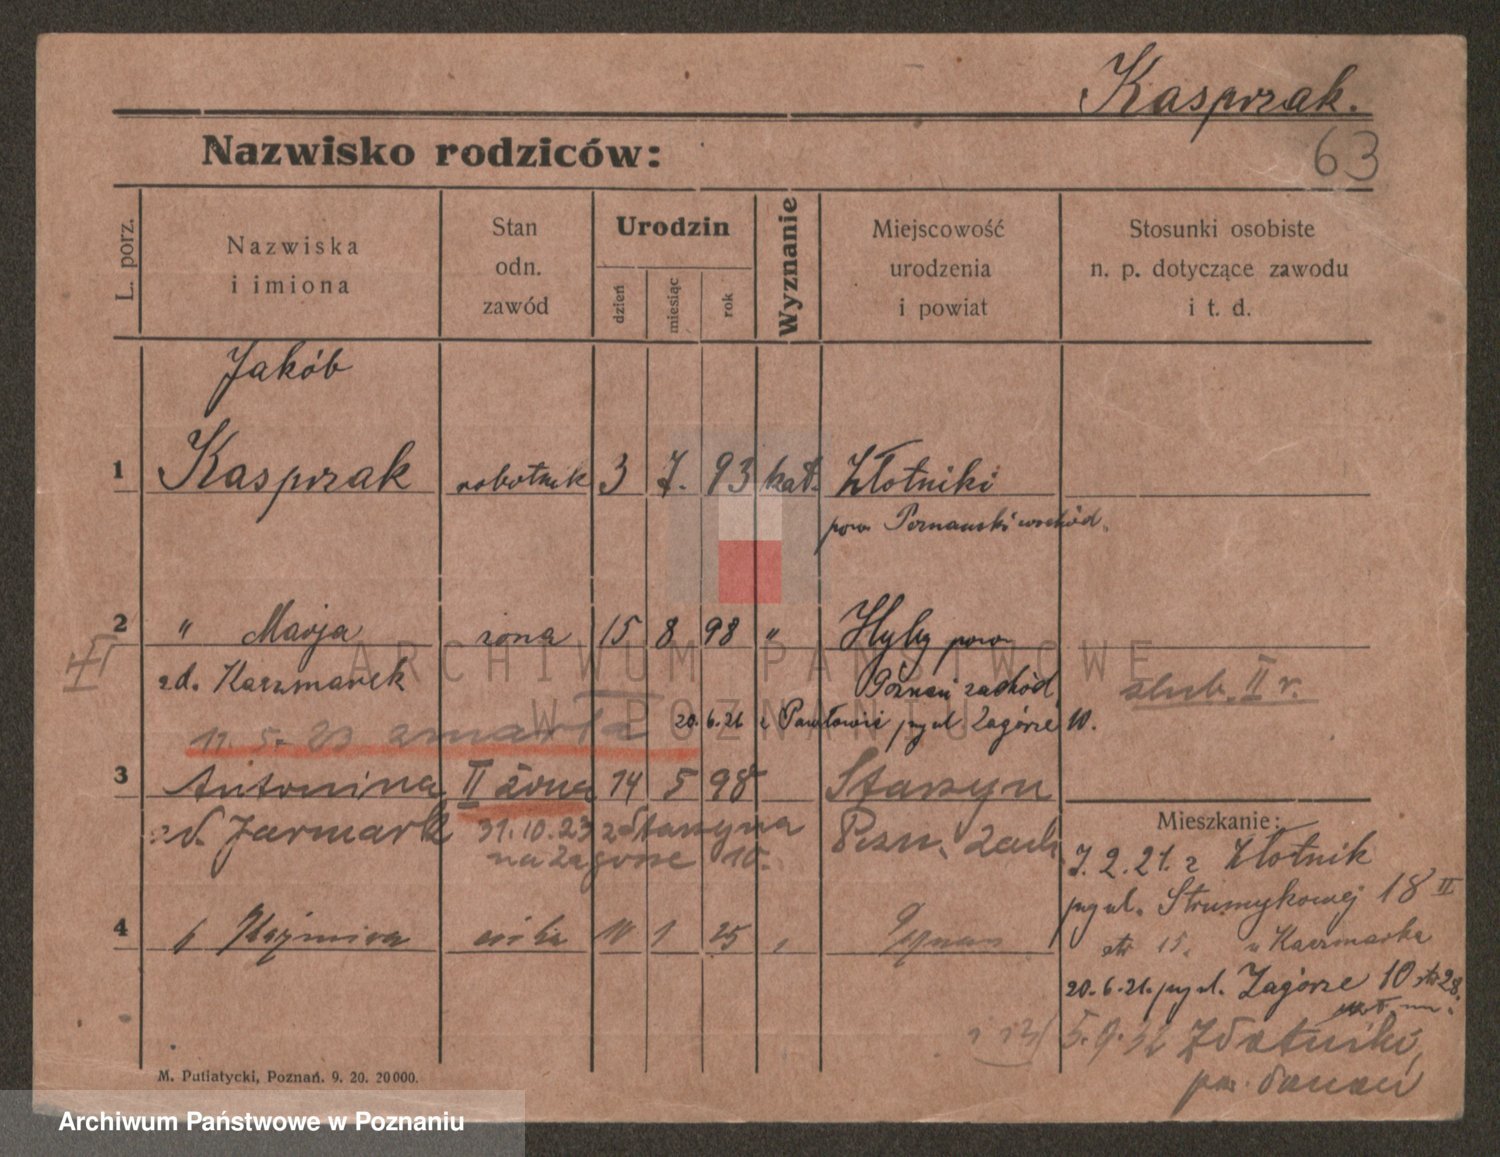 Kasprzak.
63
Nazwisko rodziców:
L. porz.
Nazwiska
i imiona
Stan
odn.
zawód
Urodzin
dzień
miesiąc
rok
Wyznanie
Miejscowość
urodzenia
i powiat
Stosunki osobiste
n. p. dotyczące zawodu
i t. d.
Jakób
1 Kasprzak robotnik 3 7. 93 kat. Złotniki
pow. Poznański wschód.
2 " Marja żona 15 8 98 " Hyby pow.
zd. Kaczmarek Poznań zachód
ślub. II r.
20.6.21 z Pawłowic przy ul. Zagórze 10.
11.5.23 zmarła
3 Antonina II żona 14 5 98 Starzyn
zd. Jarmark 31.10.23 z Starzyna Pozn. zach
na Zagórze 10.
4 Kazimira córka 11 1 25 Poznań
Mieszkanie:
7.2.21. z Złotnik
przy ul. Strumykowej 18 II
str 15. u Kaczmarka
20.6.21. przy ul. Zagórze 10 str 28.
5.9.32 Złotniki,
pow. Poznań
M. Putiatycki, Poznań. 9. 20. 20000.
ARCHIWUM PAŃSTWOWE
W POZNANIU
Archiwum Państwowe w Poznaniu